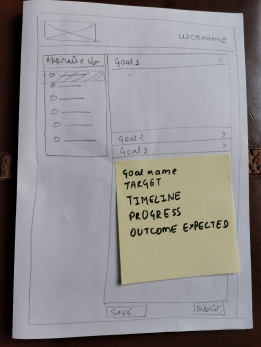 username
Appraise
Goal 1
Goal 2
Goal 3
Goal name
TARGET
TIMELINE
PROGRESS
OUTCOME EXPECTED
SAVE
Submit